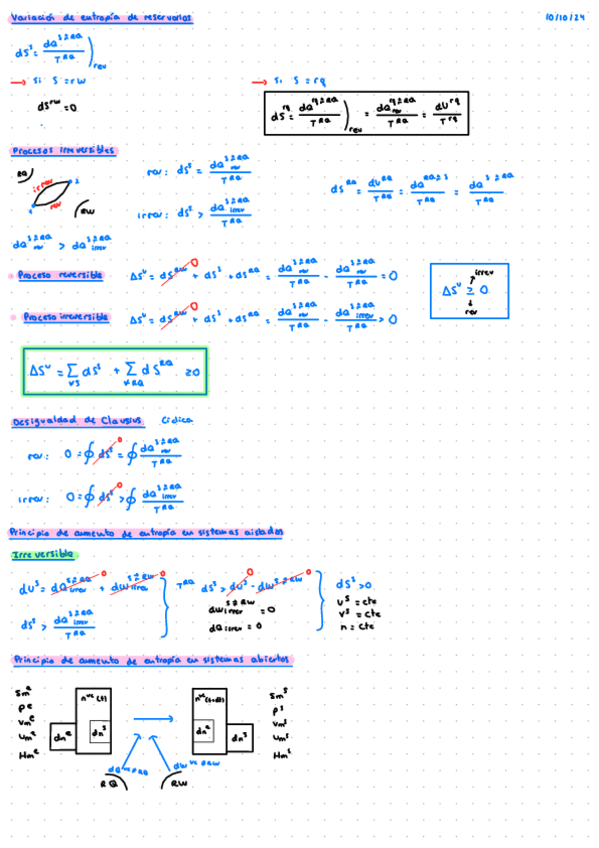 Variación de entropía de reservorios 10/10/24
dS^S = dQ^{S⇄RQ} / T^{RQ} )_rev
→ Si S = rW → Si S = rq
dS^{rW} = 0 dS^{rq} = dQ^{rq⇄RQ} / T^{RQ} )_rev = dQ_rev^{rq⇄RQ} / T^{RQ} = dU^{rq} / T^{rq}
Procesos irreversibles
RQ irrev 2 1 rev RW
rev: dS^S = dQ_rev^{S⇄RQ} / T^{RQ}
irrev: dS^S > dQ_irrev^{S⇄RQ} / T^{RQ}
dS^{RQ} = dU^{RQ} / T^{RQ} = dQ^{RQ⇄S} / T^{RQ} = dQ^{S⇄RQ} / T^{RQ}
dQ_rev^{S⇄RQ} > dQ_irrev^{S⇄RQ}
Proceso reversible ΔS^U = dS^{RW} 0 + dS^S + dS^{RQ} = dQ_rev^{S⇄RQ} / T^{RQ} - dQ_rev^{S⇄RQ} / T^{RQ} = 0
Proceso irreversible ΔS^U = dS^{RW} 0 + dS^S + dS^{RQ} = dQ_rev^{S⇄RQ} / T^{RQ} - dQ_irrev^{S⇄RQ} / T^{RQ} > 0
irrev
ΔS^U ≥ 0
rev
ΔS^U = Σ_{∀S} dS^S + Σ_{∀RQ} dS^{RQ} ≥ 0
Desigualdad de Clausius Cíclica
rev: 0 = ∮ dS^S 0 = ∮ dQ_rev^{S⇄RQ} / T^{RQ}
irrev: 0 = ∮ dS^S 0 > ∮ dQ_irrev^{S⇄RQ} / T^{RQ}
Principio de aumento de entropía en sistemas aislados
Irreversible
dU^S = dQ_irrev^{S⇄RQ} 0 + dW_irrev^{S⇄RW} 0
dS^S > dQ_irrev^{S⇄RQ} / T^{RQ}
T^{RQ} dS^S > dU^S 0 - dW^{S⇄RW} 0
dW_irrev^{S⇄RW} = 0
dQ_irrev = 0
dS^S > 0
U^S = cte
V^S = cte
n = cte
Principio de aumento de entropía en sistemas abiertos
Sm^e n^{vc}(t) n^{vc}(t+dt) Sm^s
p^e p^s
Vm^e Vm^s
Um^e dn^e dn^s dn^e dn^s Um^s
Hm^e Hm^s
dQ^{vc⇄RQ} dW^{vc⇄RW}
RQ RW